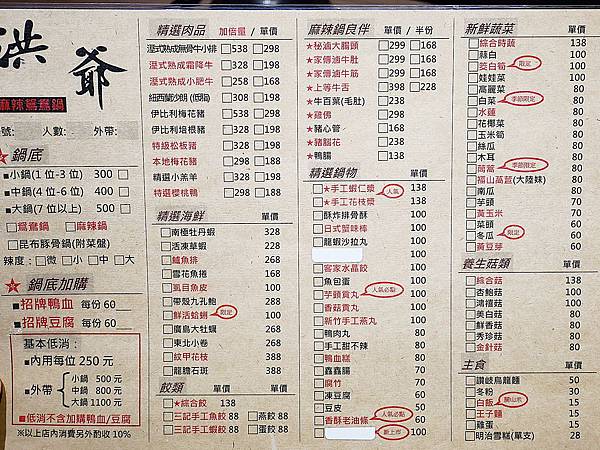 洪爺
麻辣鴛鴦鍋
號: 人數: 外帶:
★鍋底
■小鍋(1位-3位) 300 □
■中鍋(4位-6位) 400 □
■大鍋(7位以上) 500 □
□鴛鴦鍋 □麻辣鍋
□昆布豚骨鍋(附菜盤)
辣度:□微□小□中□大
★鍋底加購
■招牌鴨血 每份60
■招牌豆腐 每份60
基本低消:
■內用每位250元
■外帶
小鍋 500元
中鍋 800元
大鍋 1100元
■低消不含加購鴨血/豆腐
※以上店內消費另外酌收10%
精選肉品 加倍量 / 單價
溼式熟成無骨牛小排 □538 □298
溼式熟成霜降牛 □328 □198
溼式熟成小肥牛 □258 □168
紐西蘭沙朗(低脂) □328 □198
伊比利梅花豬 □538 □298
伊比利培根豬 □328 □198
特級松板豬 □328 □198
本地梅花豬 □328 □198
精選小羔羊 □328 □198
特選櫻桃鴨 □298 □188
精選海鮮 單價
□南極牡丹蝦 328
□活凍草蝦 228
□鱸魚排 268
□雪花魚捲 168
□虱目魚皮 100
□帶殼九孔鮑 288
□鮮活蛤蜊 限定 100
□廣島大牡蠣 268
□東北小卷 268
□紋甲花枝 388
□龍膽石斑 388
餃類 單價 單價
□★綜合餃 138
□三記手工魚餃 88 □燕餃 88
□三記手工蝦餃 88 □蛋餃 88
麻辣鍋良伴 單價 / 半份
★秘滷大腸頭 □299 □168
★家傳滷牛肚 □299 □168
★家傳滷牛筋 □299 □168
★上等牛舌 □398 □228
★牛百葉(毛肚) □238
★雞佛 □168
★豬心管 □168
★豬腦花 □168
★鴨腸 □168
精選鍋物 單價
□★手工蝦仁漿 人氣 138
□★手工花枝漿 138
□酥炸排骨酥 100
□日式蟹味棒 100
□龍蝦沙拉丸 100
100
□客家水晶餃 80
□魚包蛋 80
□芋頭貢丸 人氣必點 80
□香菇貢丸 80
□新竹手工燕丸 80
□鴨肉丸 80
□手工甜不辣 80
□鴨血糕 80
□鑫鑫腸 70
□腐竹 70
□凍豆腐 60
□豆皮 50
□香酥老油條 人氣必點 50
新上市 100
新鮮蔬菜 單價
□綜合時蔬 138
□絲白 100
□茭白筍 限定 100
□娃娃菜 100
□高麗菜 80
□白菜 季節限定 80
□水蓮 80
□花椰菜 80
□玉米筍 80
□絲瓜 80
□木耳 80
□茼蒿 季節限定 80
□福山萵苣(大陸妹) 80
□南瓜 80
□芋頭 70
□黃玉米 70
□菜頭 60
□冬瓜 限定 60
□黃豆芽 60
養生菇類 單價
□綜合菇 138
□杏鮑菇 100
□鴻禧菇 100
□美白菇 80
□鮮香菇 80
□秀珍菇 80
□金針菇 80
主食 單價
□讚岐烏龍麵 50
□冬粉 30
□白飯 關山米 15
□王子麵 15
□雞蛋 15
□明治雪糕(單支) 28